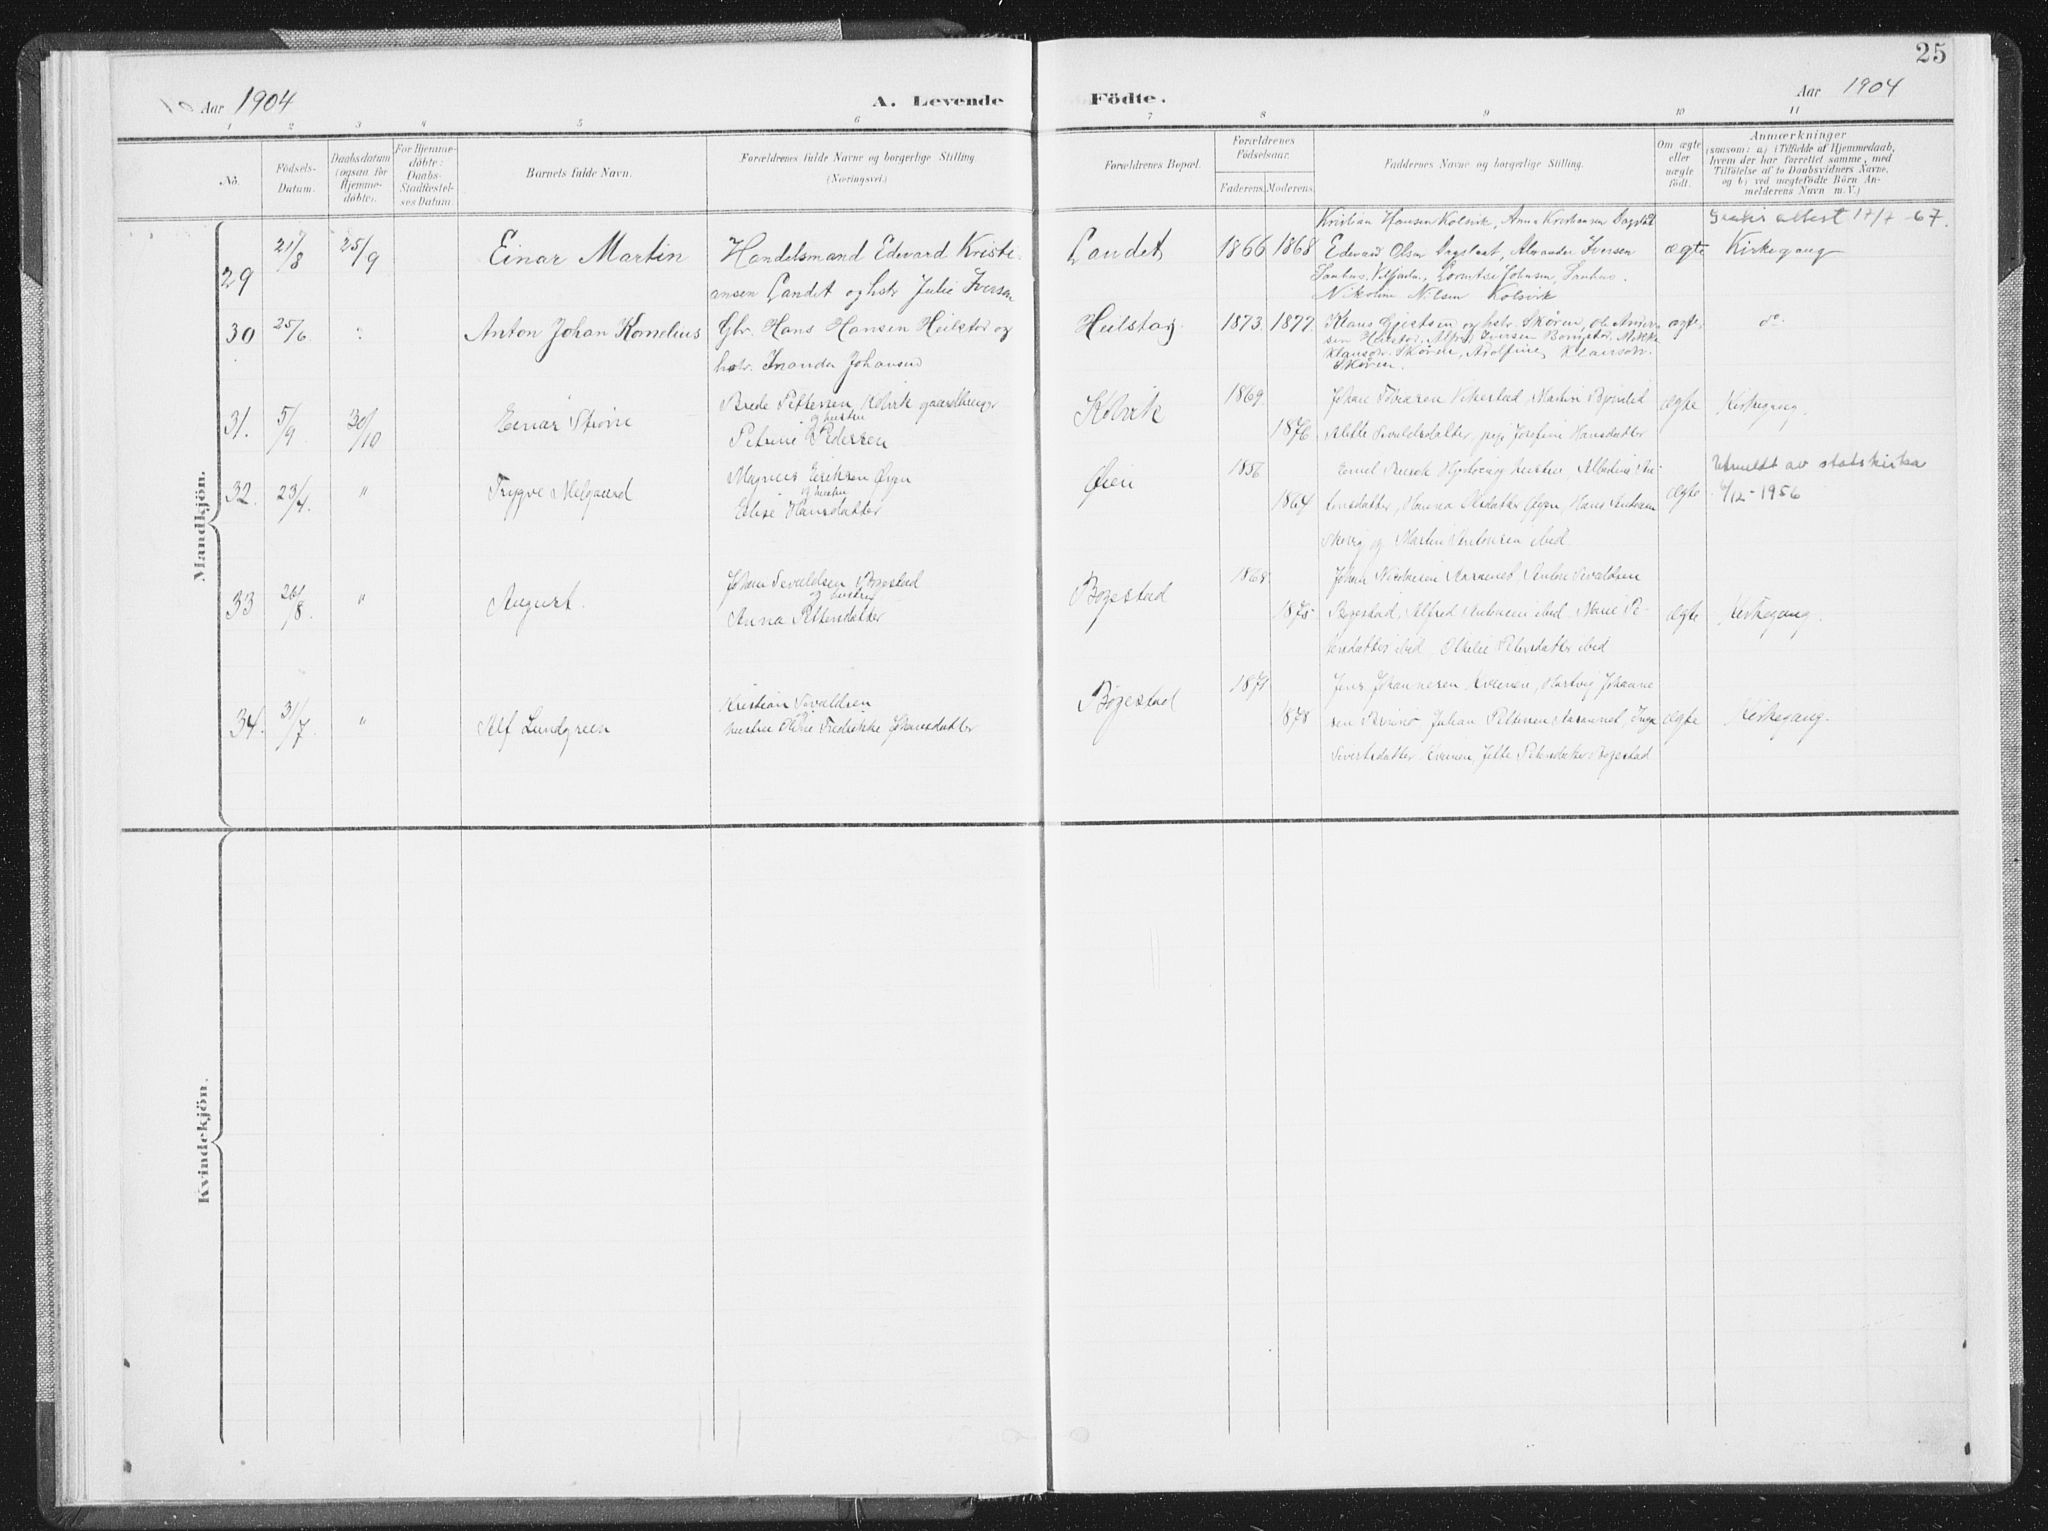 25
Aar 1904
A. Levende Födte.
Aar 1904
1 2 3 4 5 6 7 8 9 10 11
No.
Födsels-
Datum.
Daabsdatum
(ogsaa for
Hjemme-
döbte).
For Hjemme-
döbte:
Daabs-
Stadfæstel-
ses Datum.
Barnets fulde Navn.
Forældrenes fulde Navne og borgerlige Stilling.
(Næringsvei.)
Forældrenes Bopæl.
Forældrenes
Födselsaar.
Faderens. Moderens.
Faddernes Navne og borgerlige Stilling.
Om ægte
eller
uægte
födt.
Anmærkninger
(saasom: a) i Tilfælde af Hjemmedaab,
hvem der har forrettet samme, med
Tilföielse af to Daabsvidners Navne,
og b) ved uægtefödte Börn An-
melderens Navn m. V.)
Mandkjön.
29 21/8 25/9 Einar Martin
Handelsmand Edvard Kristi-
ansen Landet og hstr Julie Iversen
Landet 1866 1868
Kristian Hansen Kolsvik, Anna Kristiansen
Edevard Olsen Alexander Iversen
Sauhus, Lorentse Johnsen, Sauhus.
Nikoline Nilsen Kolsvik
ægte
attest 17/7 -67.
Kirkegang
30 25/6 :
Anton Johan Kornelius
Gbr. Hans Hansen Heilstad og
hstr. Johansen
Heilstad 1873. 1877.
Klaus og hstr. Skøren, Ole Ander-
sen Heilstad, Iversen
Klausdtr. Skøren, Adolfine Klausdtr.
Skøren.
ægte do
31. 5/9 30/10
Einar Strøm
Brede Pettersen Kolvik gaardbruger
og hustru
Petrine Pedersen
Kolvik 1869 1876
Johan Vikestad, Martin
Alette Sivaldsdatter, pige Josefine Hansdatter
ægte Kirkegang.
32. 23/4 "
Trygve Melgaard
Magnus Eriksen Øyen
og hustru
Elise Hansdatter
Øien 1856 1864
Emil og hustru Albertine
Hanna Olsdatter Øyen, Hans Antonsen
og Martin Antonsen ibid.
ægte
Utmeldt av statskirka
6/12-1956
33 26/8. "
August.
Johan Sivaldsen Bøgestad
og hustru
Anna Pettersdatter
Bogestad 1868 1875
Johan Nicolaisen Anton Sivaldsen
Bogestad, Alfred Antonsen ibid Marie Pe-
tersdatter ibid, Petersdatter ibid
ægte Kirkegang.
34. 31/7. "
Alf Lundgreen
Kristian Sivaldsen
hustru Oline Fredrikke Johansdatter
Bøgestad 1871 1878
Jens Johannesen Kvenen, Hartvig Johanne-
sen Julian Pettersen Inga
Sivertsdatter Kvenen, Petersdatter Bogestad
ægte Kirkegang.
Kvindekjön.